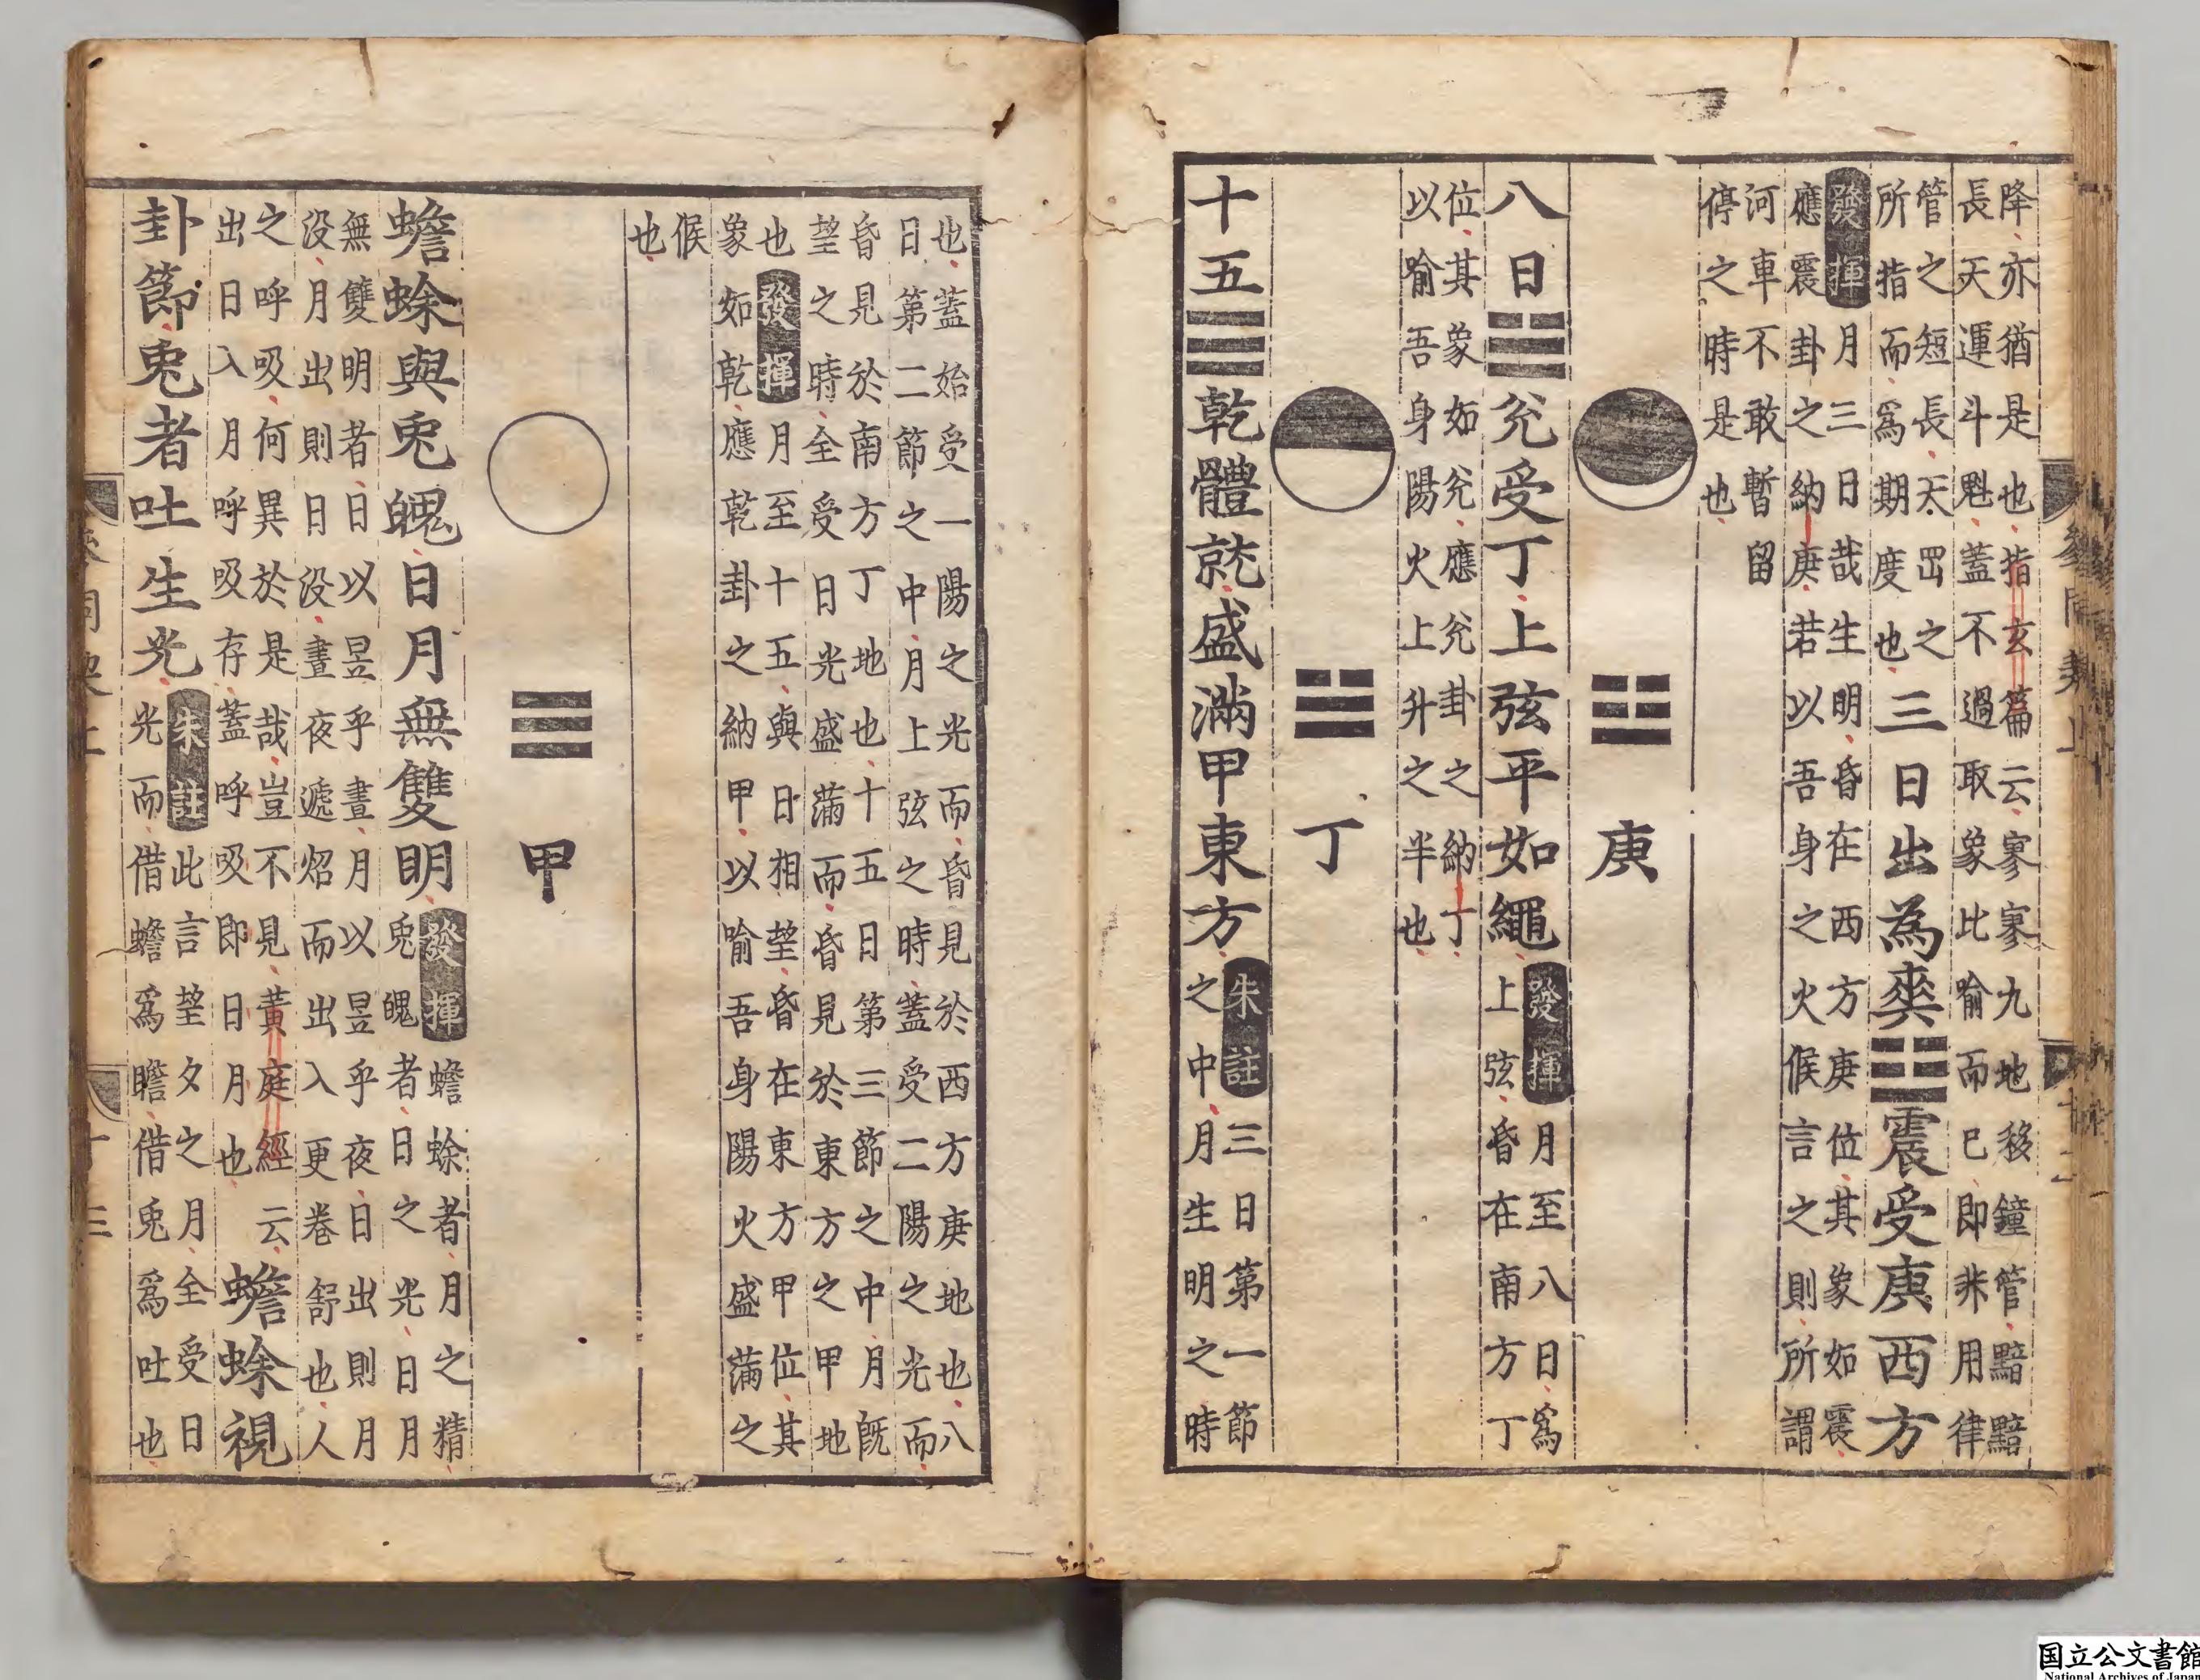 降亦猶是也指玄篇云寥寥九地移鐘管黯黯
長天運斗魁蓋不過取象比喻而已即非用律
管之短長天罡之
所指而爲期度也
三日出為爽☳震受庚西方
發揮
月三日哉生明昏在西方庚位其象如震
應震卦之納庚若以吾身之火候言之則所謂
河車不敢暫留
停之時是也
☳
庚
八日☱兊受丁上弦平如繩
發揮
月至八日爲
上弦昏在南方丁
位其象如兊應兊卦之納丁
以喻吾身陽火上升之半也
☱
丁
十五☰乾體就盛滿甲東方
朱註
三日第一節
之中月生明之時
也蓋始受一陽之光而昏見於西方庚地也八
日第二節之中月上弦之時蓋受二陽之光而
昏見於南方丁地也十五日第三節之中月旣
望之時全受日光盛滿而昏見於東方之甲地
也
發揮
月至十五與日相望昏在東方甲位其
象如乾應乾卦之納甲以喻吾身陽火盛滿之
候
也
☰
甲
蟾蜍與兎魄日月無雙明
發揮
蟾蜍者月之精
兎魄者日之光日月
無雙明者日以昱乎晝月以昱乎夜日出則月
没月出則日没晝夜遞炤而出入更卷舒也人
之呼吸何異於是哉豈不見黃庭經云
出日入月呼吸存蓋呼吸即日月也
蟾蜍視
卦節兎者吐生光
朱註
此言望夕之月全受日
光而借蟾爲瞻借兎爲吐也
十三
国立公文書館
National Archives of Japan